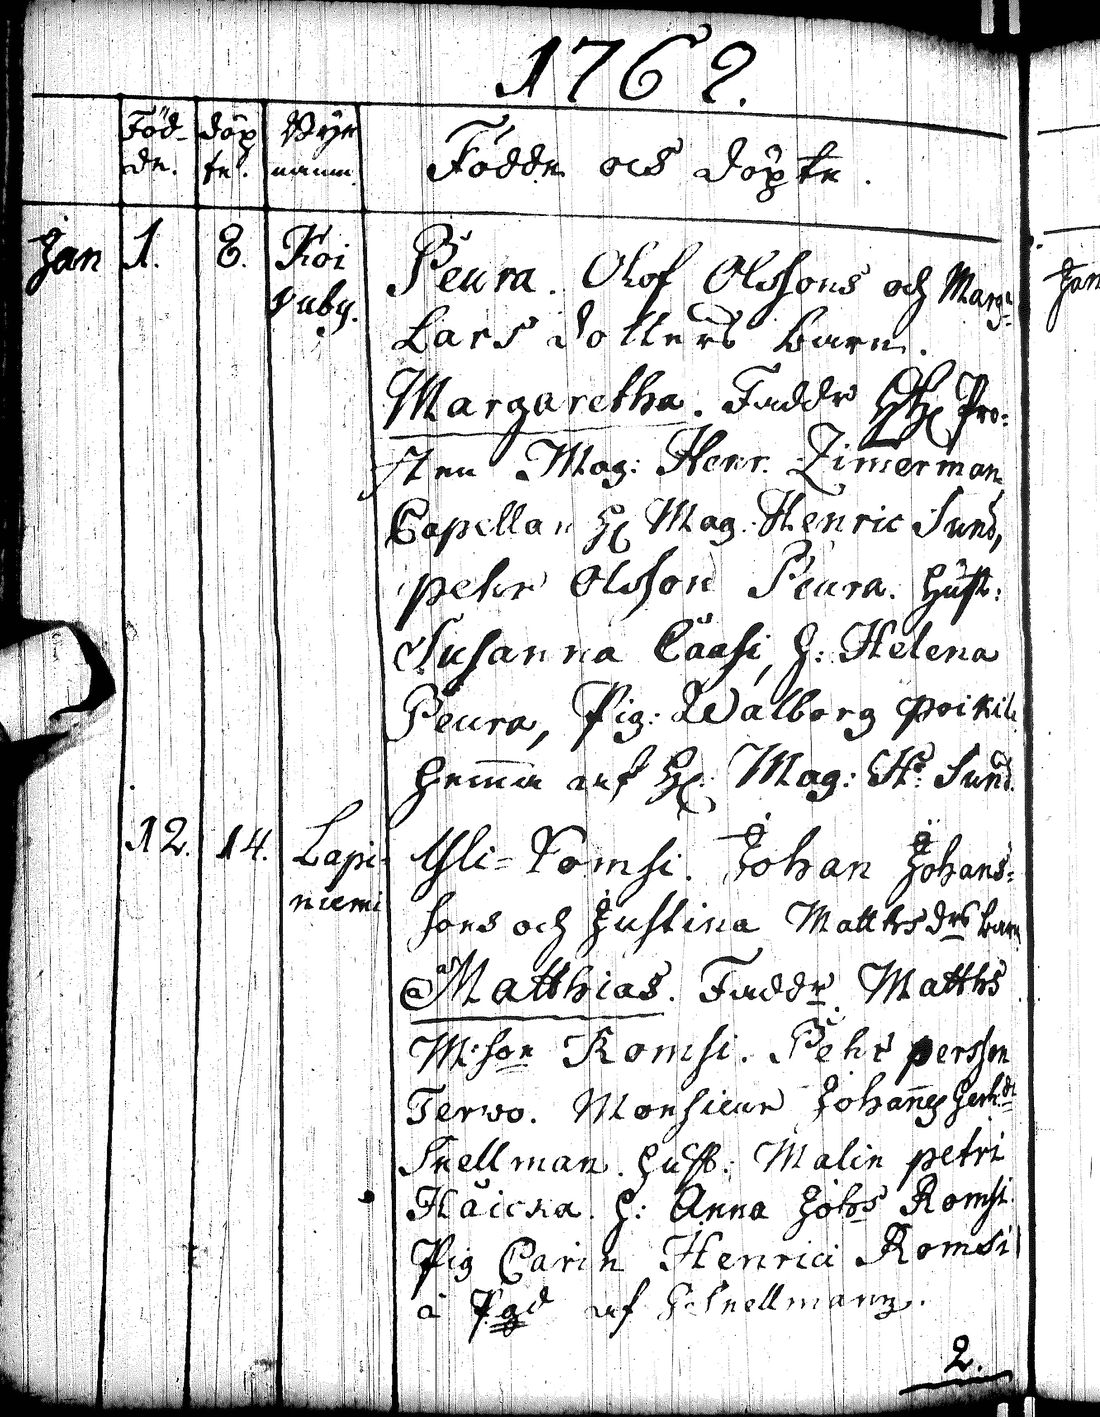 1762.
Föd- döp Byē
de. te. namn.
Födde och döpte.
Jan 1. 8. Koi Peura. Olof Olssons och Marga
vuby. Lars dotters barn.
Margaretha. Faddr HH: Pro-
sten Mag: Henr. Zimerman
Capellan H: Mag. Henric Sund,
Pehr Olsson Peura. Hust:
Susanna Cäasi, H: Helena
Peura, Pig: Walborg Poikil:
Hemma auf H: Mag: Hr: Sund.
12. 14. Lapi- Yli-Tomsi. Johan Johans-
niemi sons och Justina Matthsdrs barn
Matthias. Faddr Matths
M:son Romsi. Pehr Persson
Terwo. Monsieur Johannes Gerh:dt
Snellman. Hust: Malin Petri
Häicka. H: Anna Johs Romsi
Pig Carin Henrici Romsi
á Pgd auf H Snellmann.
2.
Jan